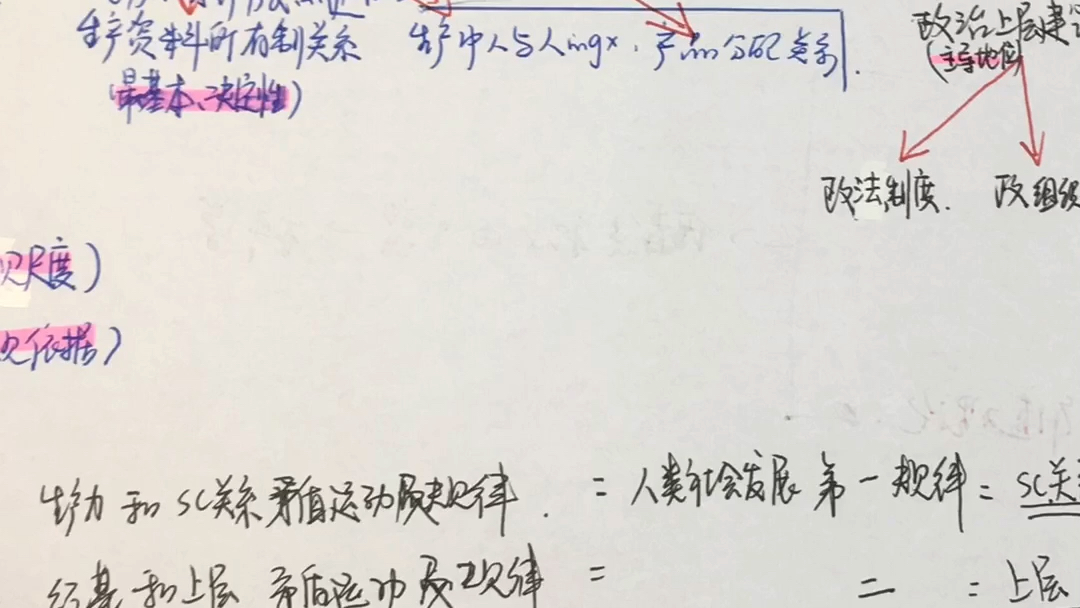 生产资料所有制关系 生产中人与人的gx、产品分配关系
(最基本、决定性)
政治上层建
(主导地位)
政法制度、 政组织
尺度)
依据)
生产力 和 SC关系 矛盾运动 规律 = 人类社会发展 第一规律 = SC关
经基 和上层 矛盾运动 规律 = 二 = 上层